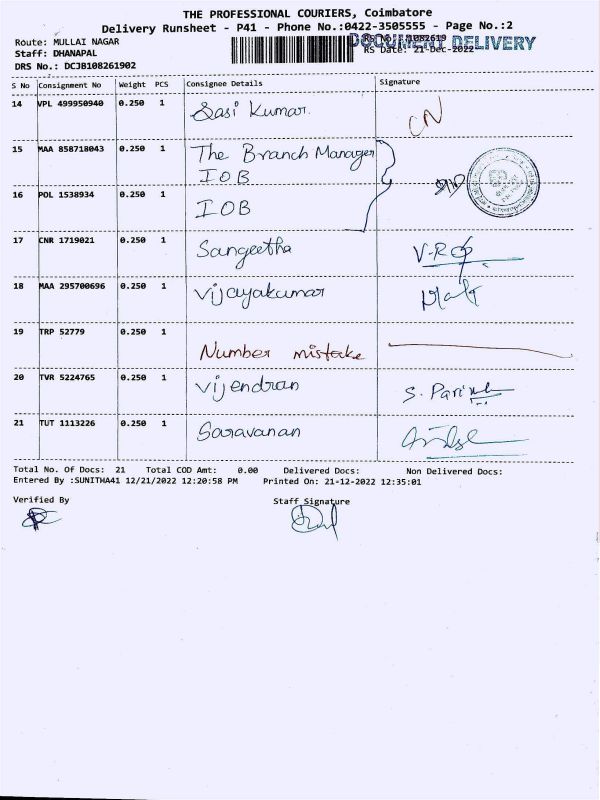 THE PROFESSIONAL COURIERS, Coimbatore
Delivery Runsheet - P41 - Phone No.:0422-3505555 - Page No.:2
Route: MULLAI NAGAR
DOCUMENT DELIVERY
Staff: DHANAPAL
RS Date: 21-Dec-2022
DRS No.: DCJB108261902
S No Consignment No Weight PCS Consignee Details Signature
14 VPL 499950940 0.250 1 Sasi Kumar. CN
15 MAA 858718043 0.250 1 The Branch Manager
IOB
16 POL 1538934 0.250 1 IOB
17 CNR 1719021 0.250 1 Sangeetha
18 MAA 295700696 0.250 1 Vijayakumar
19 TRP 52779 0.250 1 Number mistake
20 TVR 5224765 0.250 1 Vijendran
21 TUT 1113226 0.250 1 Saravanan
Total No. Of Docs: 21 Total COD Amt: 0.00 Delivered Docs: Non Delivered Docs:
Entered By :SUNITHA41 12/21/2022 12:20:58 PM Printed On: 21-12-2022 12:35:01
Verified By Staff Signature